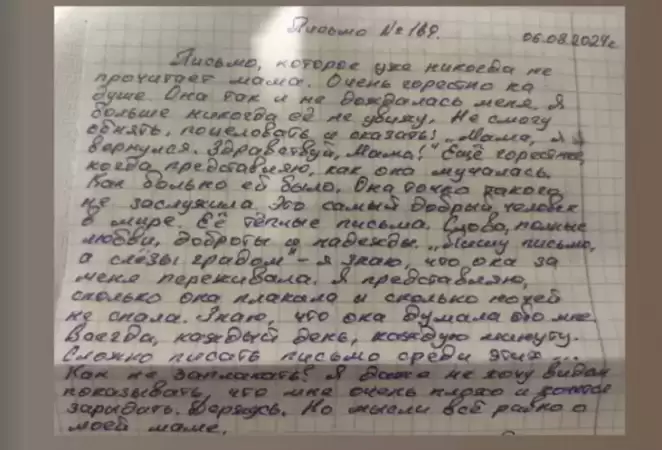 Письмо № 169.
06.08.2024г.
Письмо, которое уже никогда не
прочитает мама. Очень горестно на
душе. Она так и не дождалась меня. Я
больше никогда её не увижу. Не смогу
обнять, поцеловать и сказать: „Мама, я
вернулся. Здравствуй, Мама!" Ещё горестнее,
когда представляю, как она мучалась.
Как больно ей было. Она точно такого
не заслужила. Это самый добрый человек
в мире. Её тёплые письма. Слова, полные
любви, доброты и надежды. „Пишу письмо,
а слёзы градом" – я знаю, что она за
меня переживала. Я представляю,
сколько она плакала и сколько ночей
не спала. Знаю, что она думала обо мне
всегда, каждый день, каждую минуту.
Сложно писать письмо среди этих ...
Как не заплакать! Я даже не хочу видом
показывать, что мне очень плохо и хочется
зарыдать. Держусь. Но мысли всё равно о
моей маме.